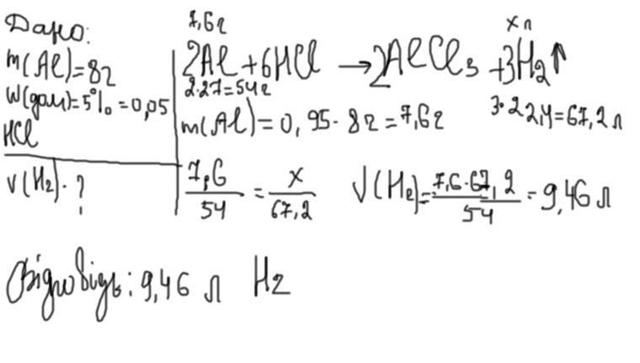 Дано:
m(Al)=8г
W(дом)=5%=0,05
HCl
V(H₂)-?
7,6г
x л
2Al+6HCl→2AlCl₃+3H₂↑
2·27=54г
3·22,4=67,2л
m(Al)=0,95·8г=7,6г
7,6/54=x/67,2
V(H₂)=7,6·67,2/54=9,46л
Відповідь: 9,46 л H₂